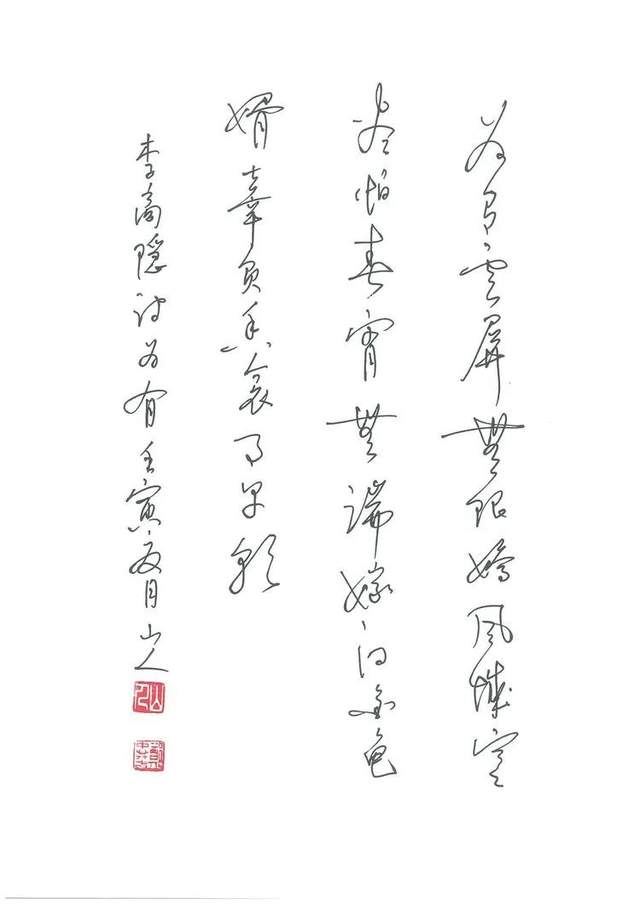 为有雲屏無限嬌凤城寒
尽怕春宵無端嫁得金龟
婿辜負香衾事早朝
李商隱詩为有壬寅夏月山人